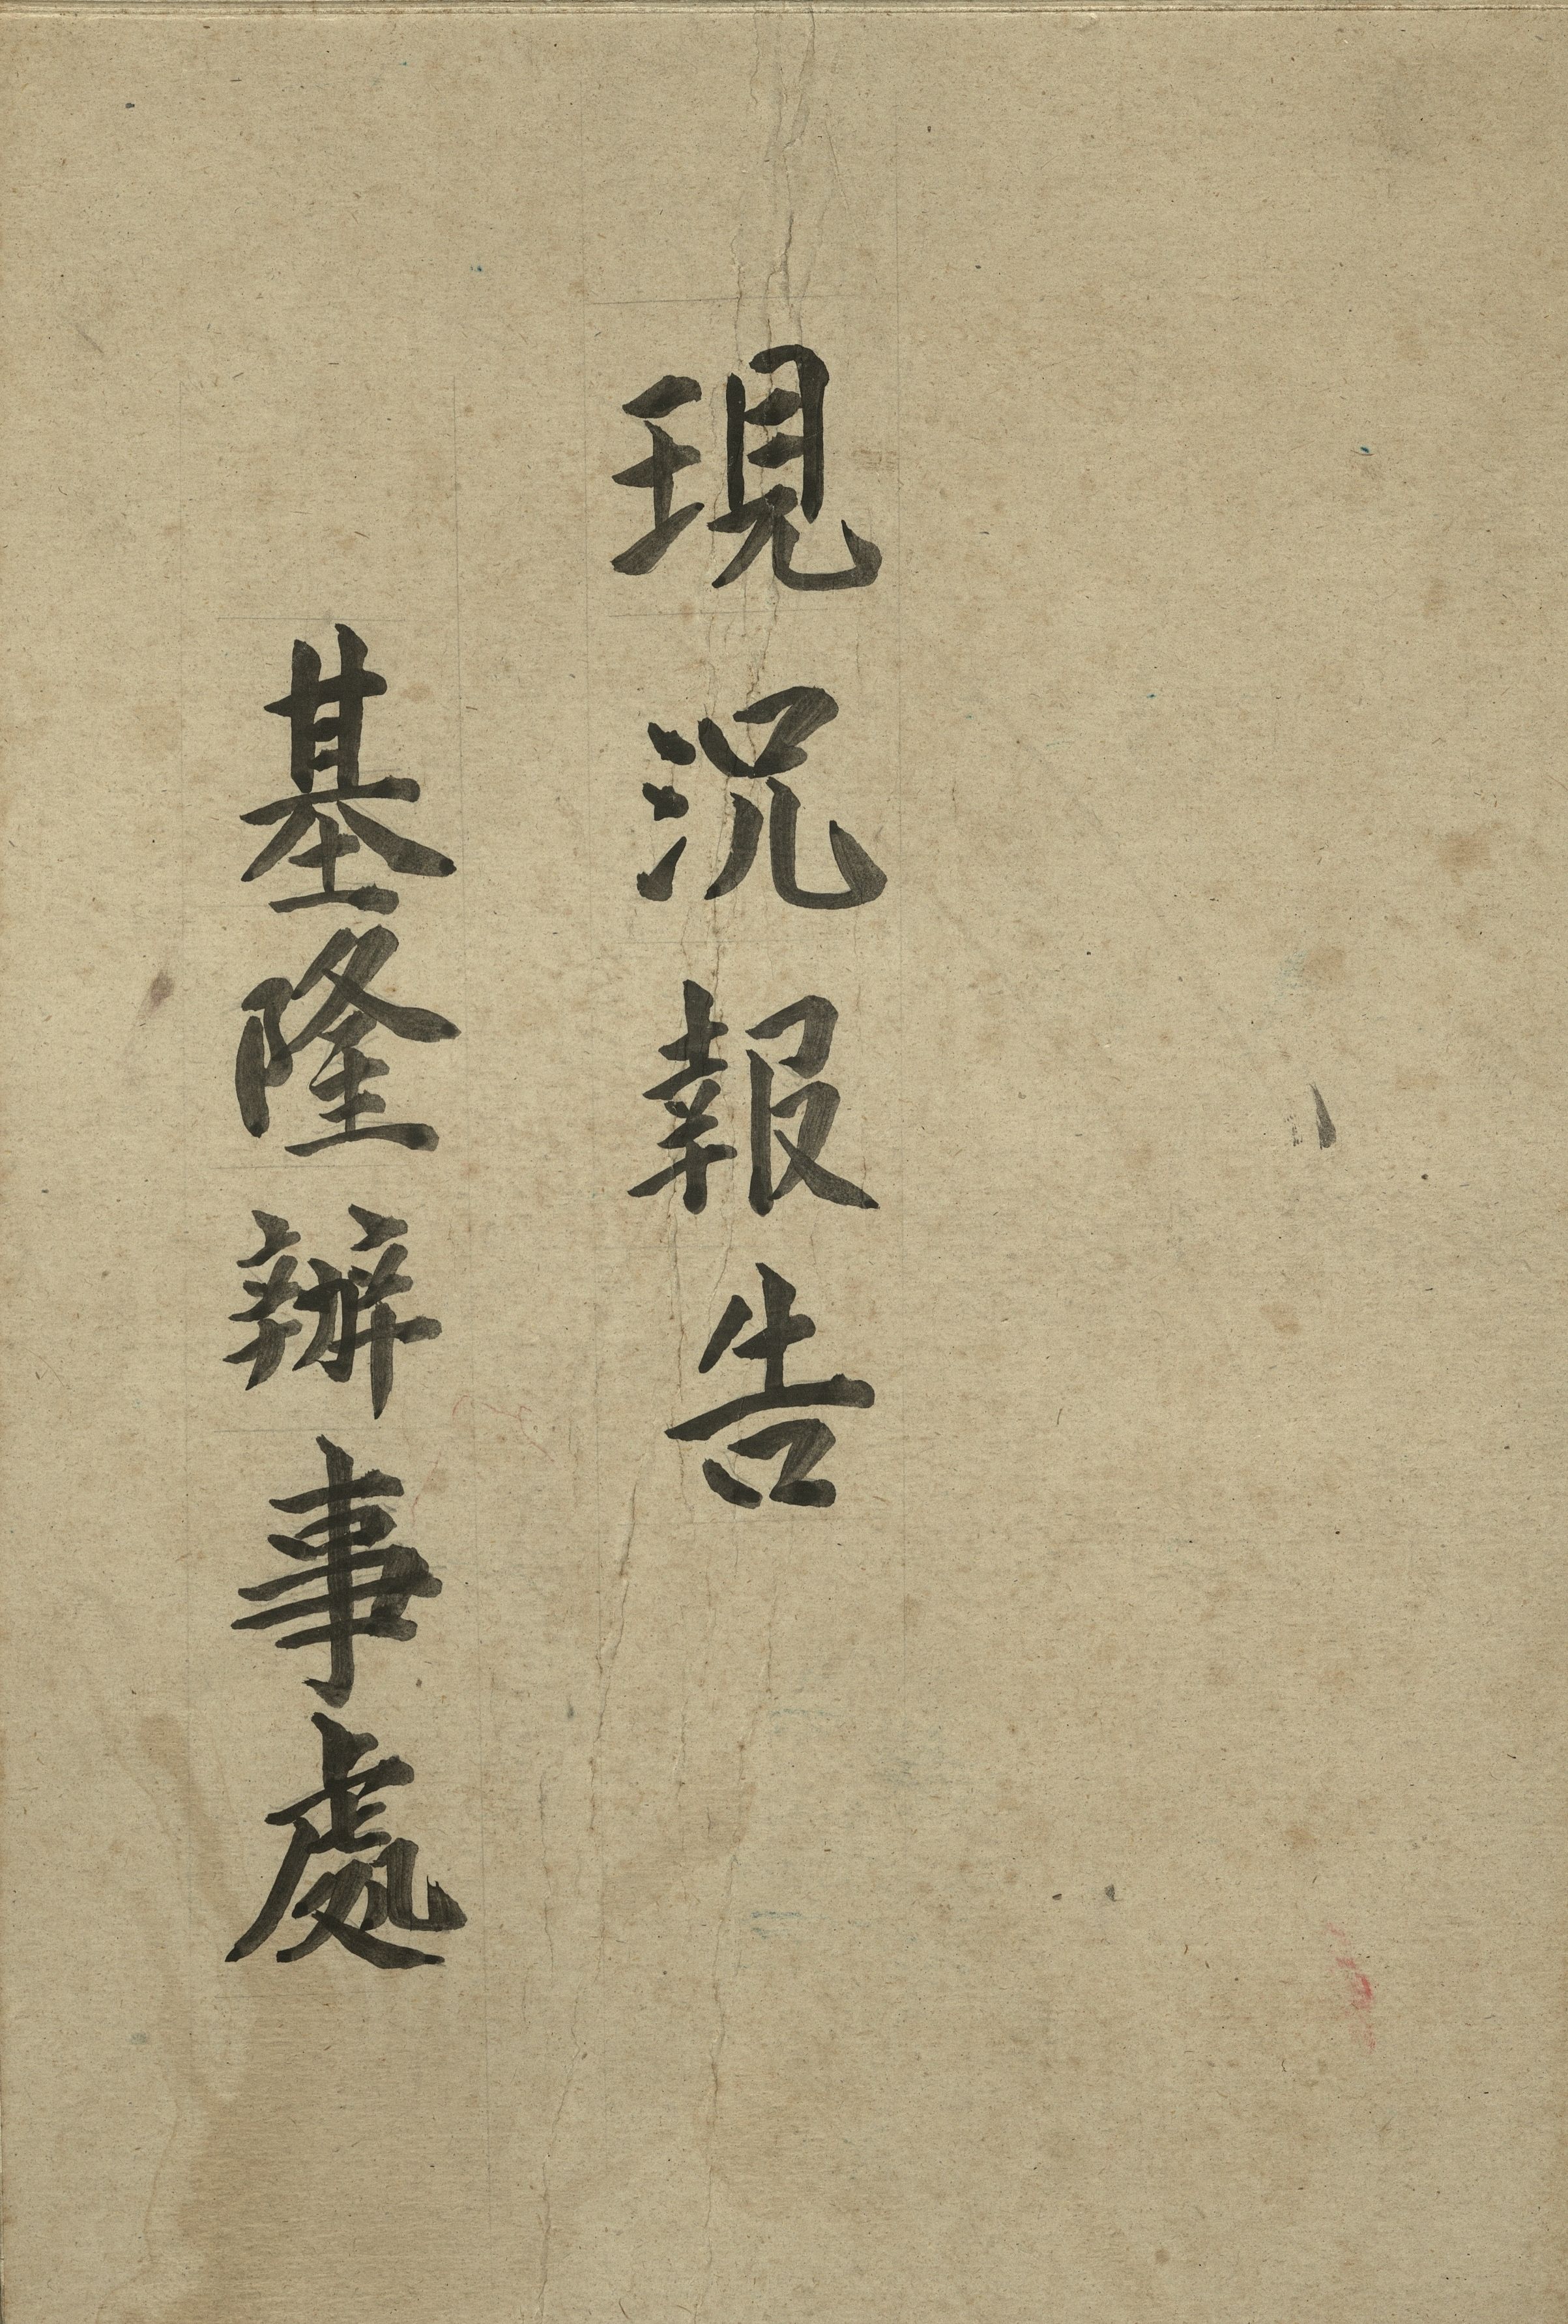 現況報告
基隆辦事處